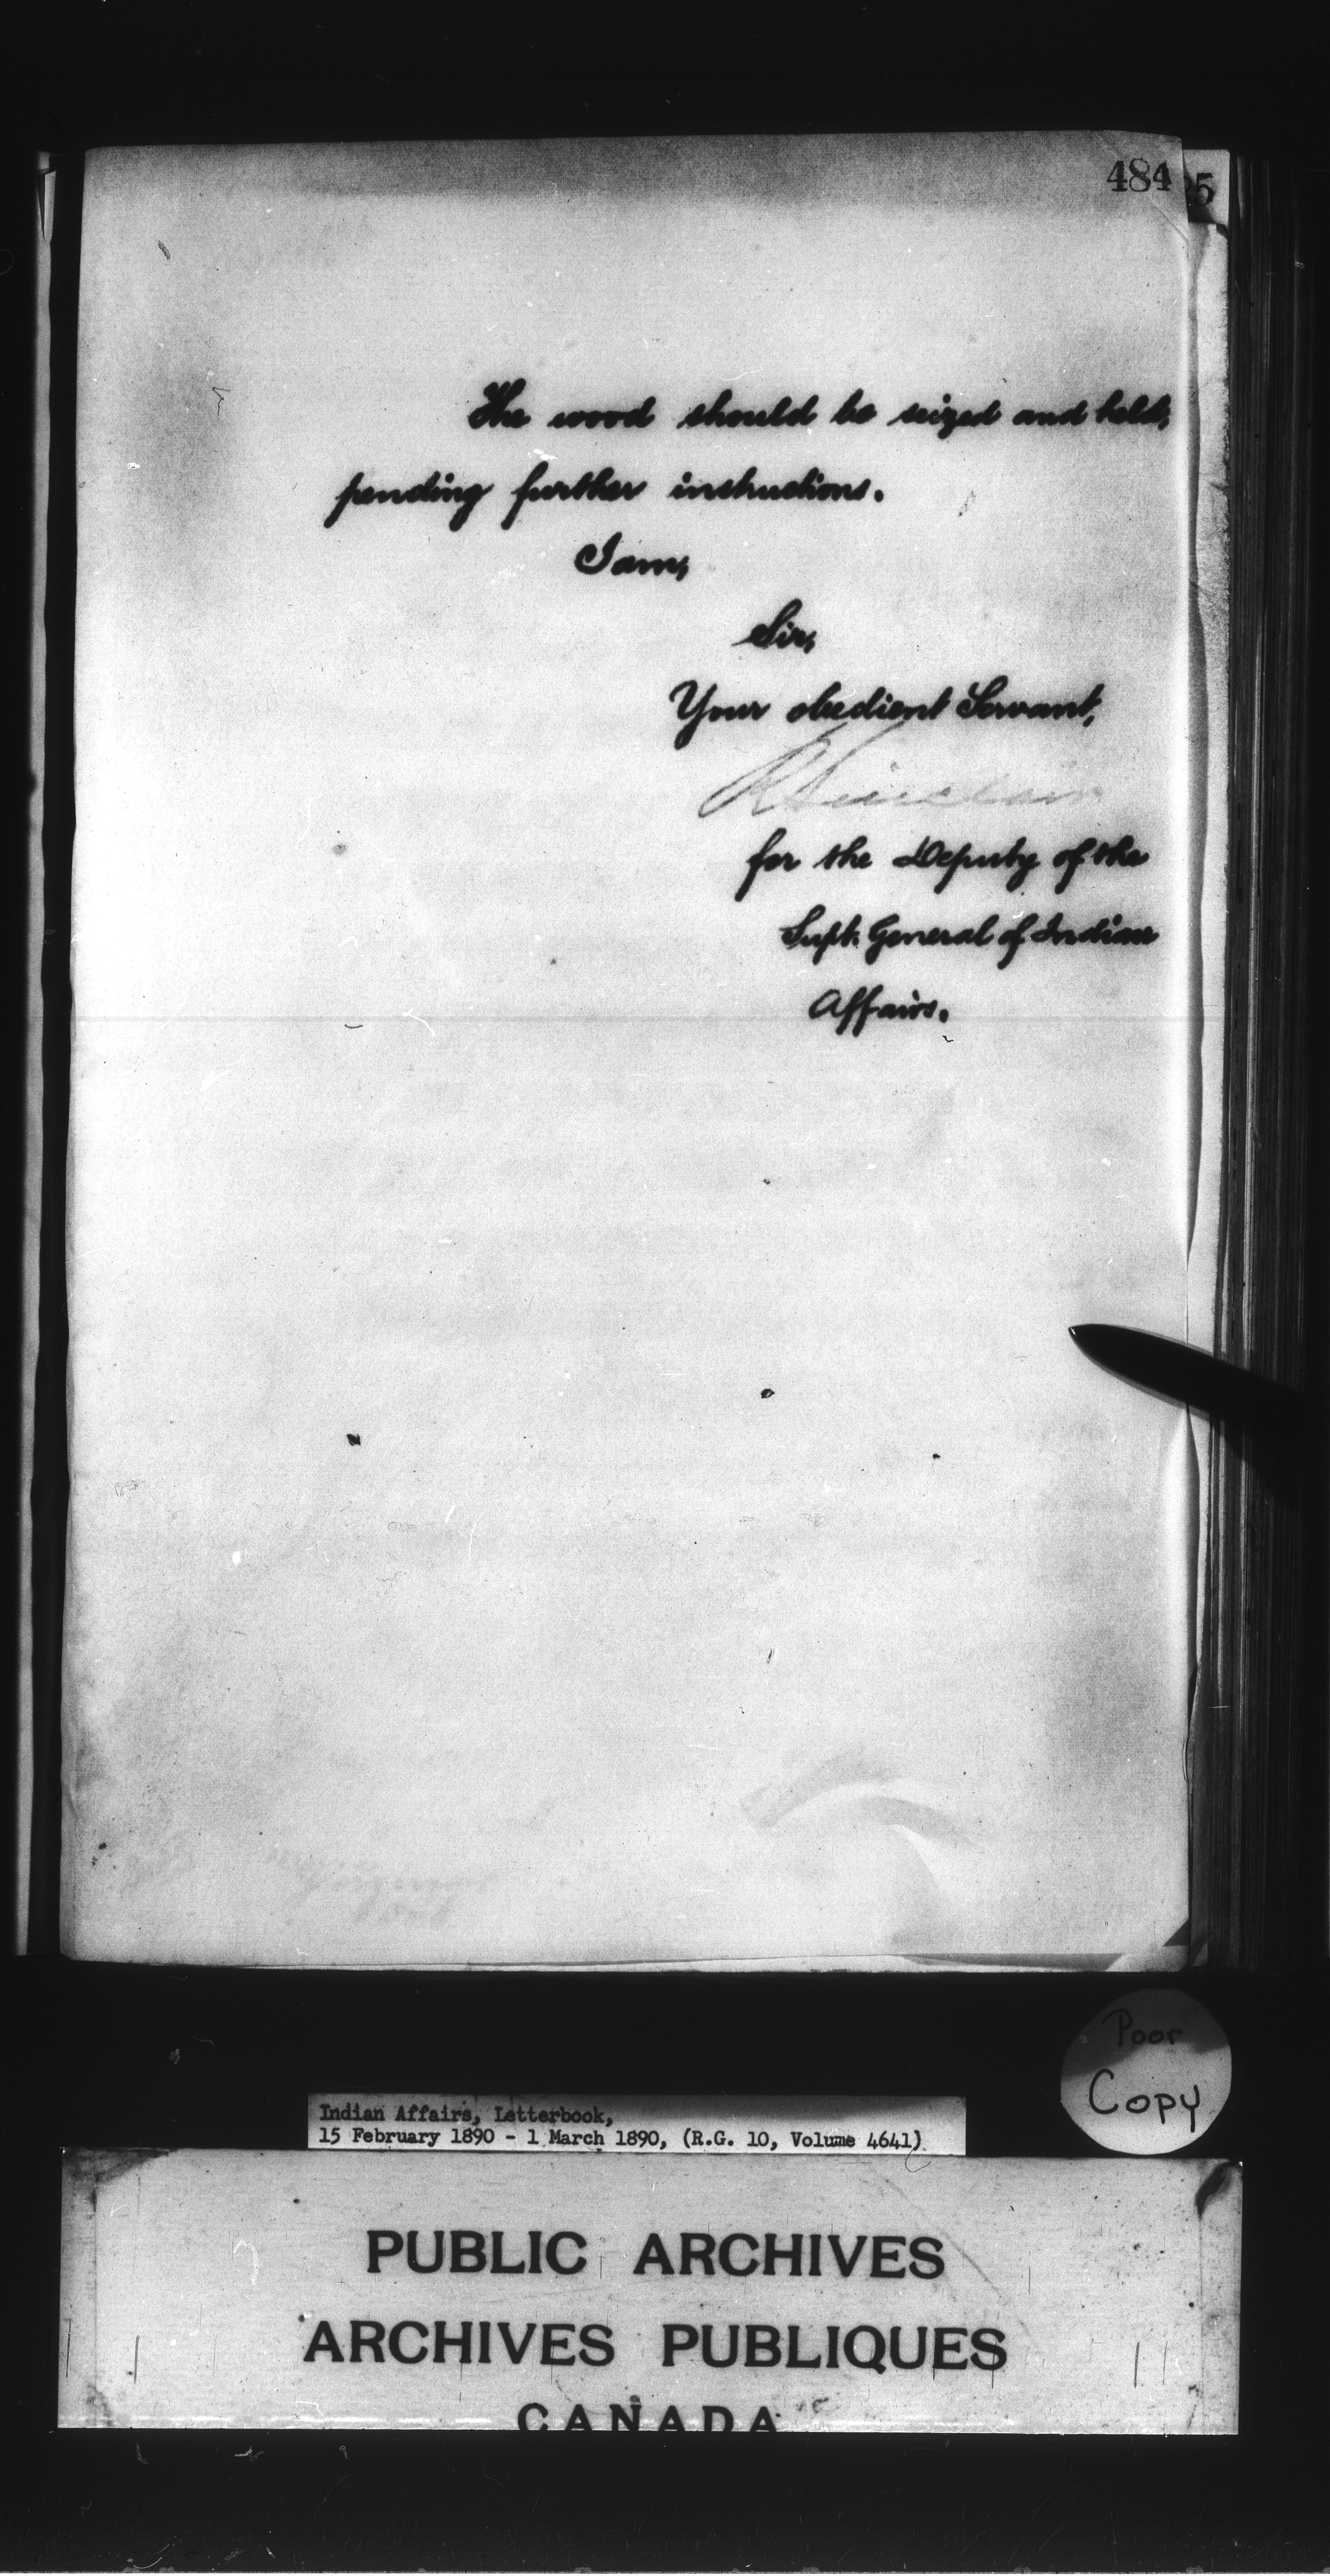 484
5
The wood should be seized and held,
pending further instructions.
I am,
Sir,
Your obedient Servant,
R Sinclair
for the Deputy of the
Supt. General of Indian
Affairs.
Poor
Copy
Indian Affairs, Letterbook,
15 February 1890 - 1 March 1890, (R.G. 10, Volume 4641)
PUBLIC ARCHIVES
ARCHIVES PUBLIQUES
CANADA